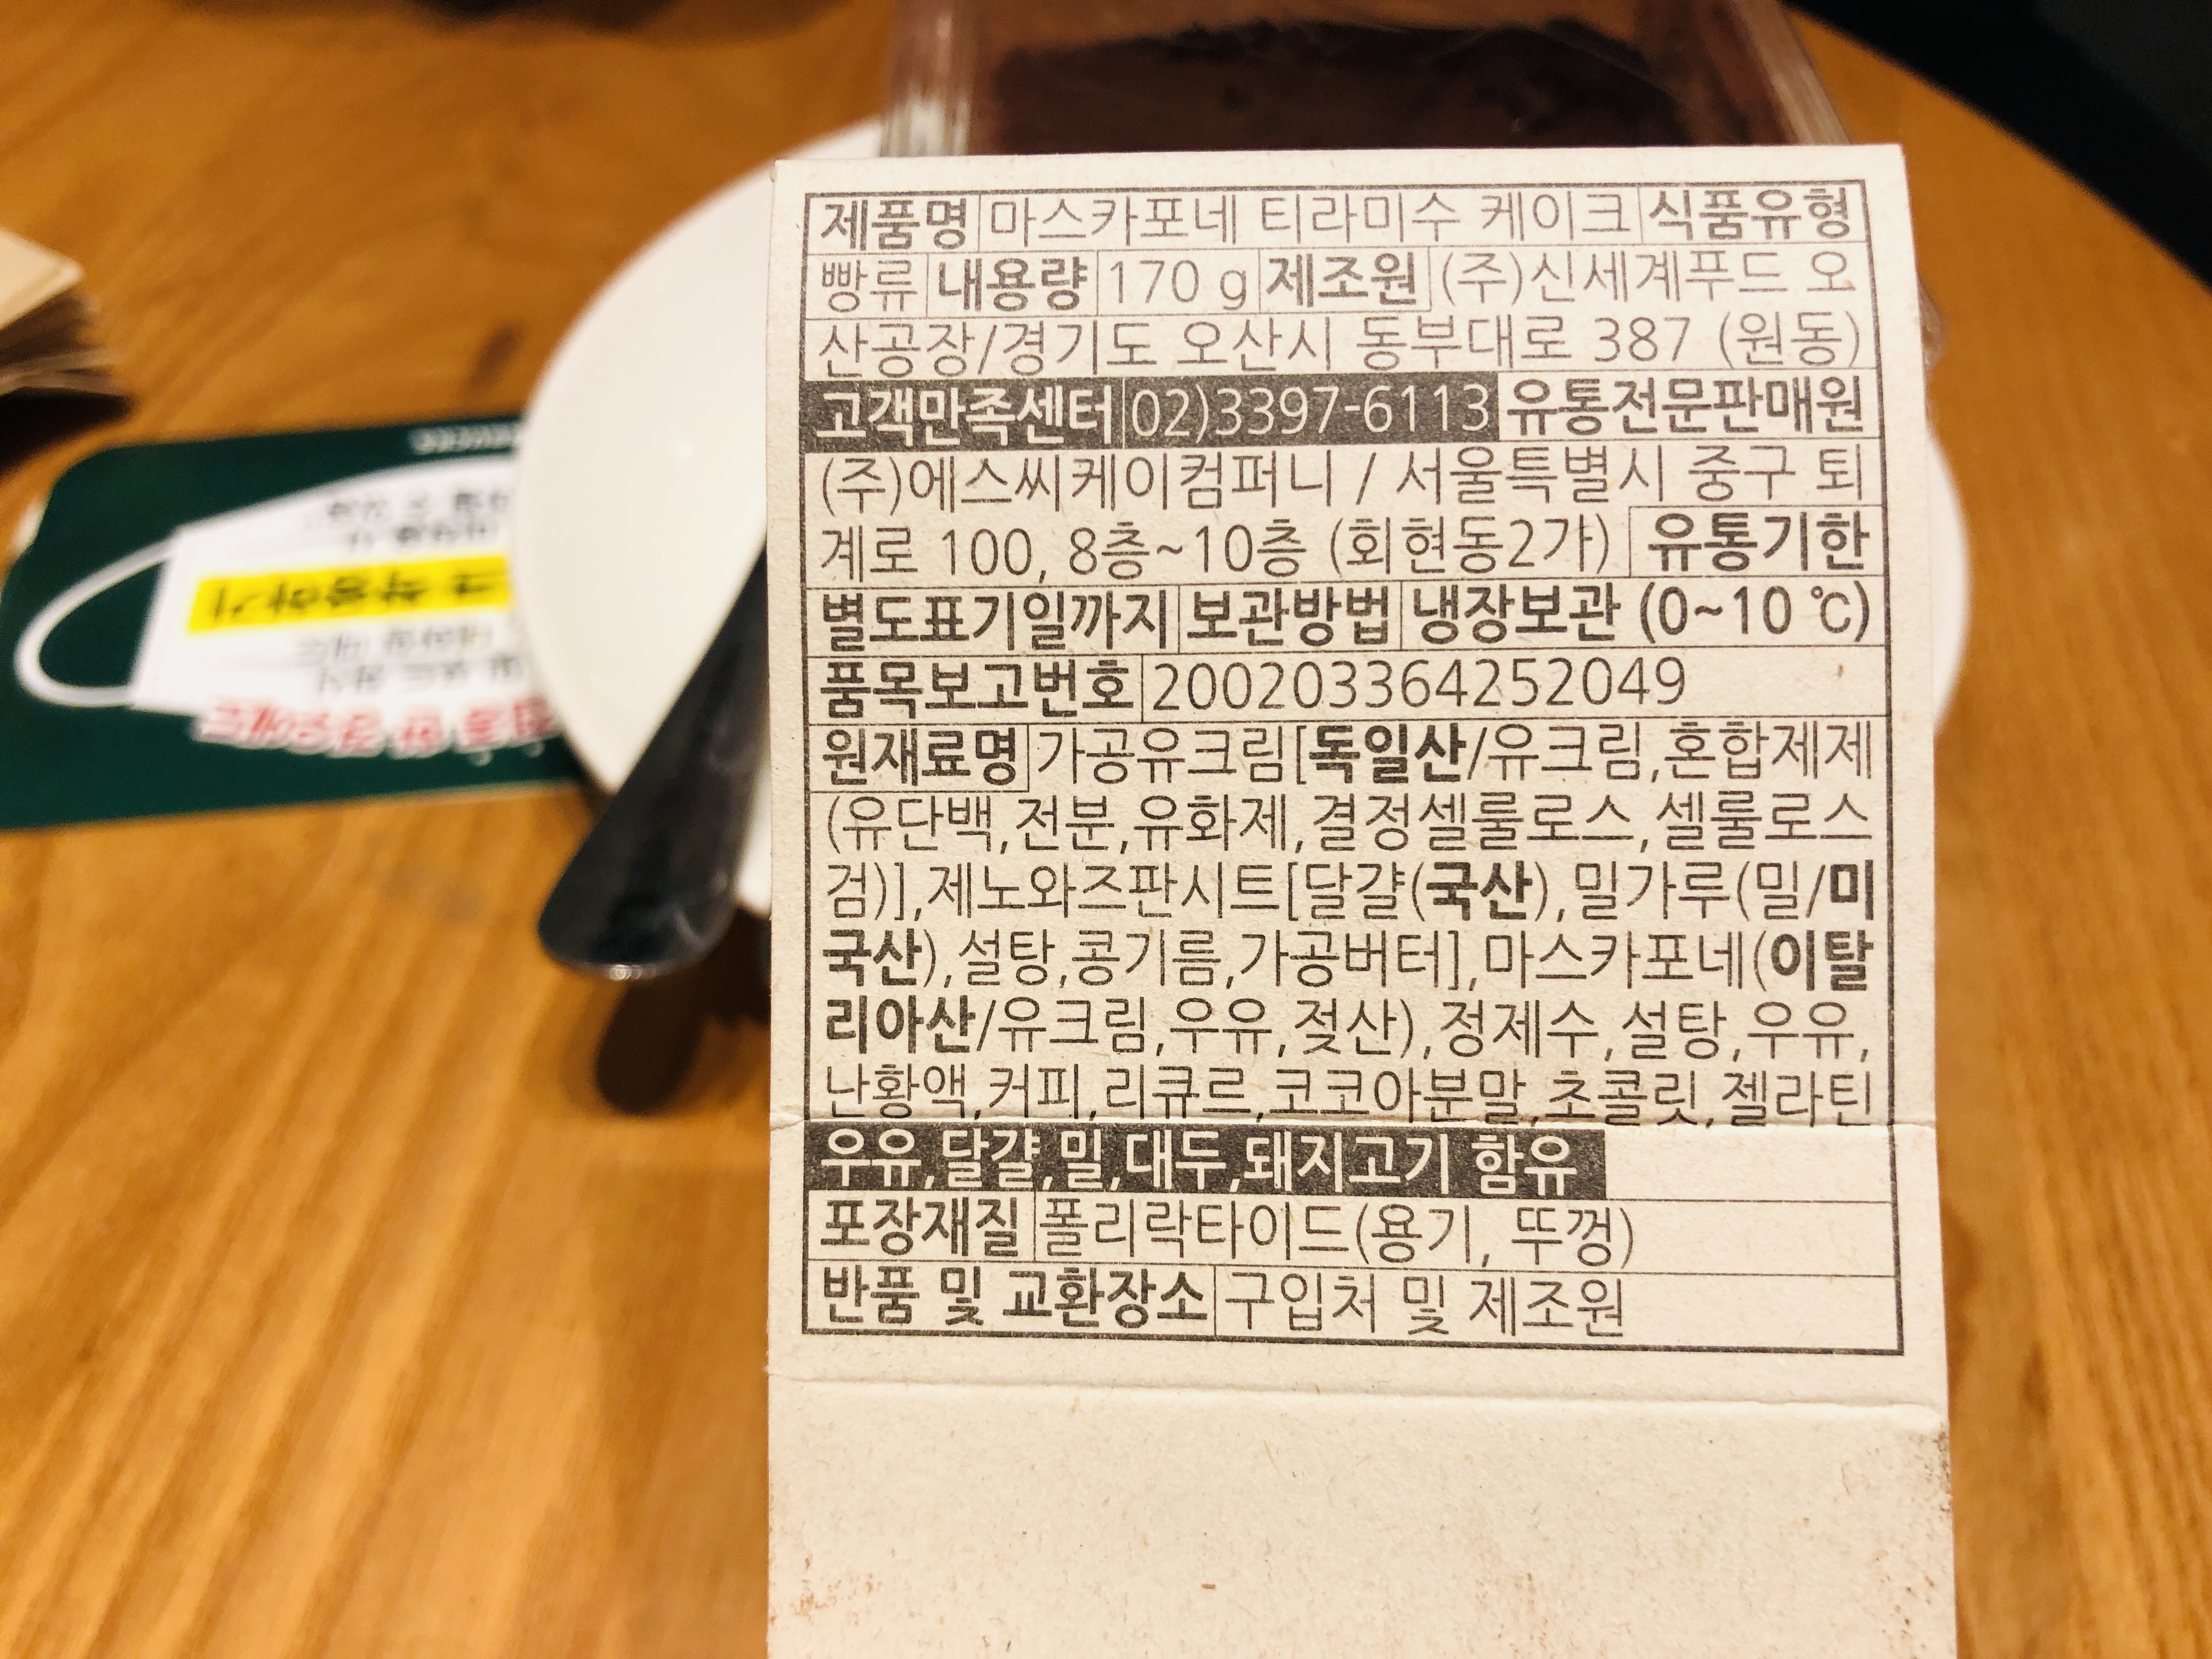 제품명 마스카포네 티라미수 케이크 식품유형
빵류 내용량 170 g 제조원 (주)신세계푸드 오
산공장/경기도 오산시 동부대로 387 (원동)
고객만족센터 02)3397-6113 유통전문판매원
(주)에스씨케이컴퍼니 / 서울특별시 중구 퇴
계로 100, 8층~10층 (회현동2가) 유통기한
별도표기일까지 보관방법 냉장보관 (0~10 ℃)
품목보고번호 200203364252049
원재료명 가공유크림[독일산/유크림,혼합제제
(유단백,전분,유화제,결정셀룰로스,셀룰로스
검)],제노와즈판시트[달걀(국산),밀가루(밀/미
국산),설탕,콩기름,가공버터],마스카포네(이탈
리아산/유크림,우유,젖산),정제수,설탕,우유,
난황액,커피,리큐르,코코아분말,초콜릿,젤라틴
우유,달걀,밀,대두,돼지고기 함유
포장재질 폴리락타이드(용기, 뚜껑)
반품 및 교환장소 구입처 및 제조원